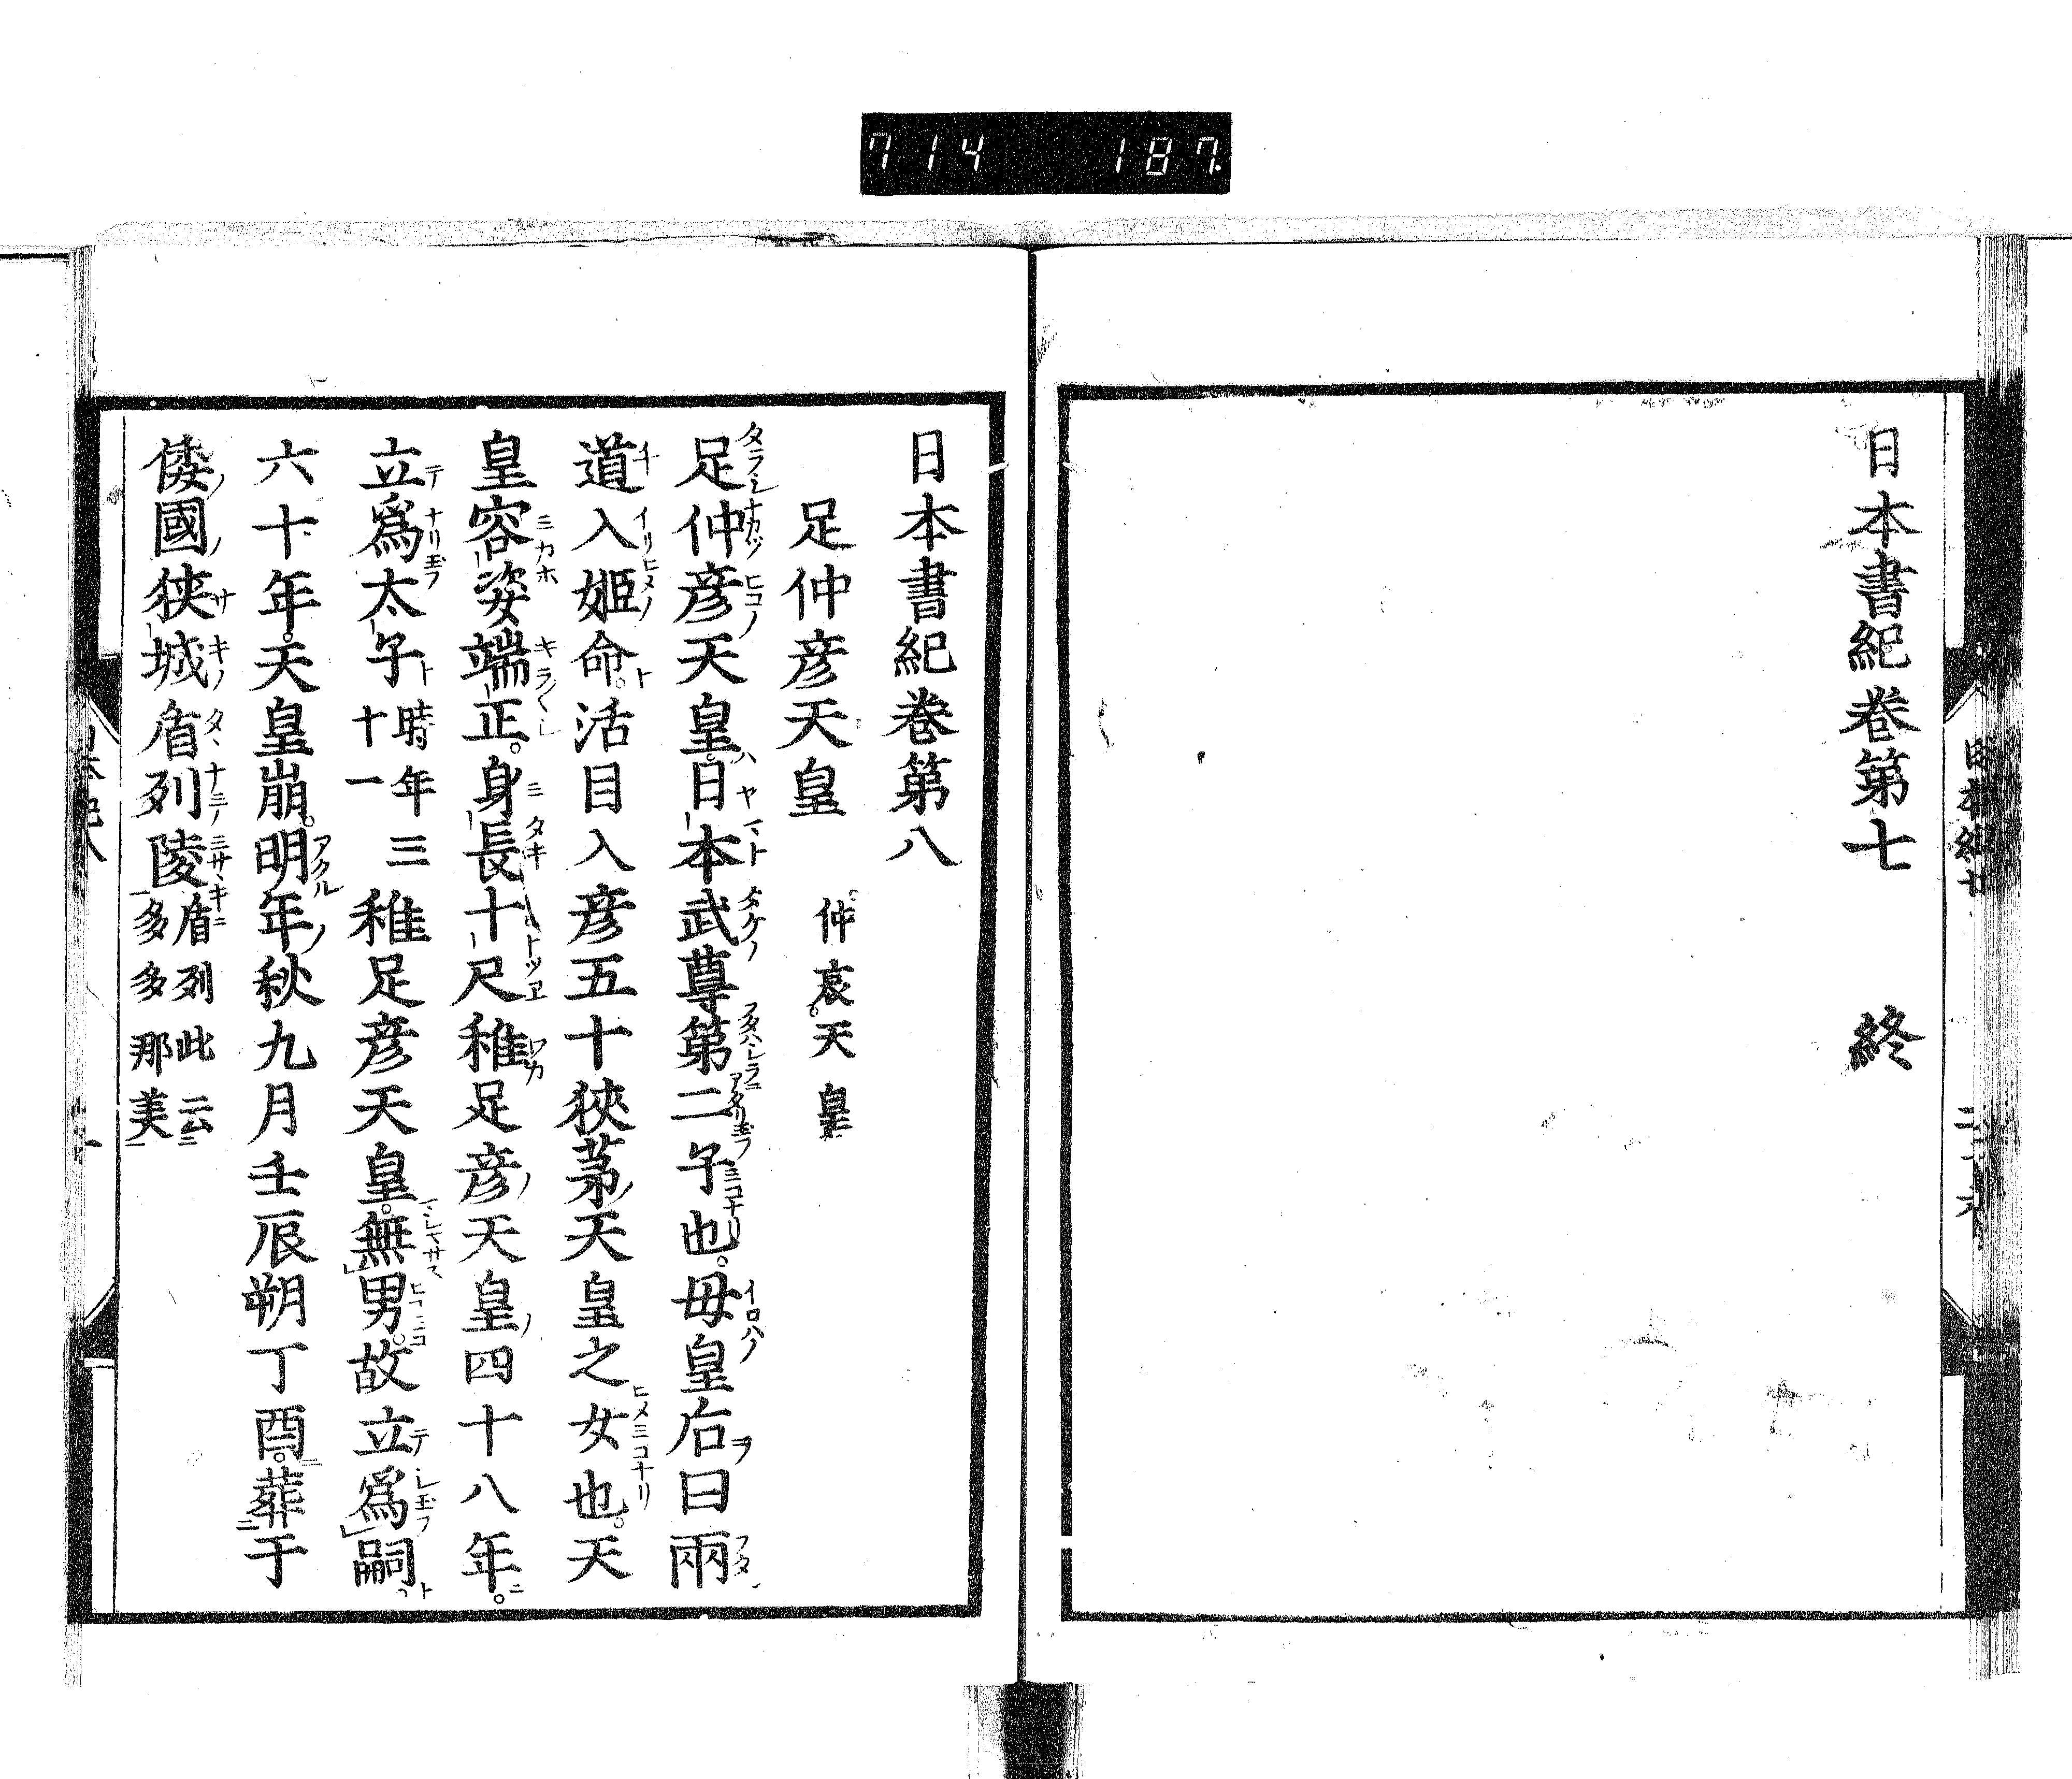 714 187
日本書紀卷第七 終
日本書紀卷第八
足仲彦天皇 仲哀天皇
足仲彦天皇。日本武尊第二子也。母皇后曰兩
道入姬命。活目入彦五十狹茅天皇之女也。天
皇容姿端正。身長十尺稚足彦天皇四十八年。
立爲太子時年三十一稚足彦天皇。無男。故立爲嗣
六十年。天皇崩。明年秋九月壬辰朔丁酉。葬于
倭國狹城盾列陵盾列此云多多那美